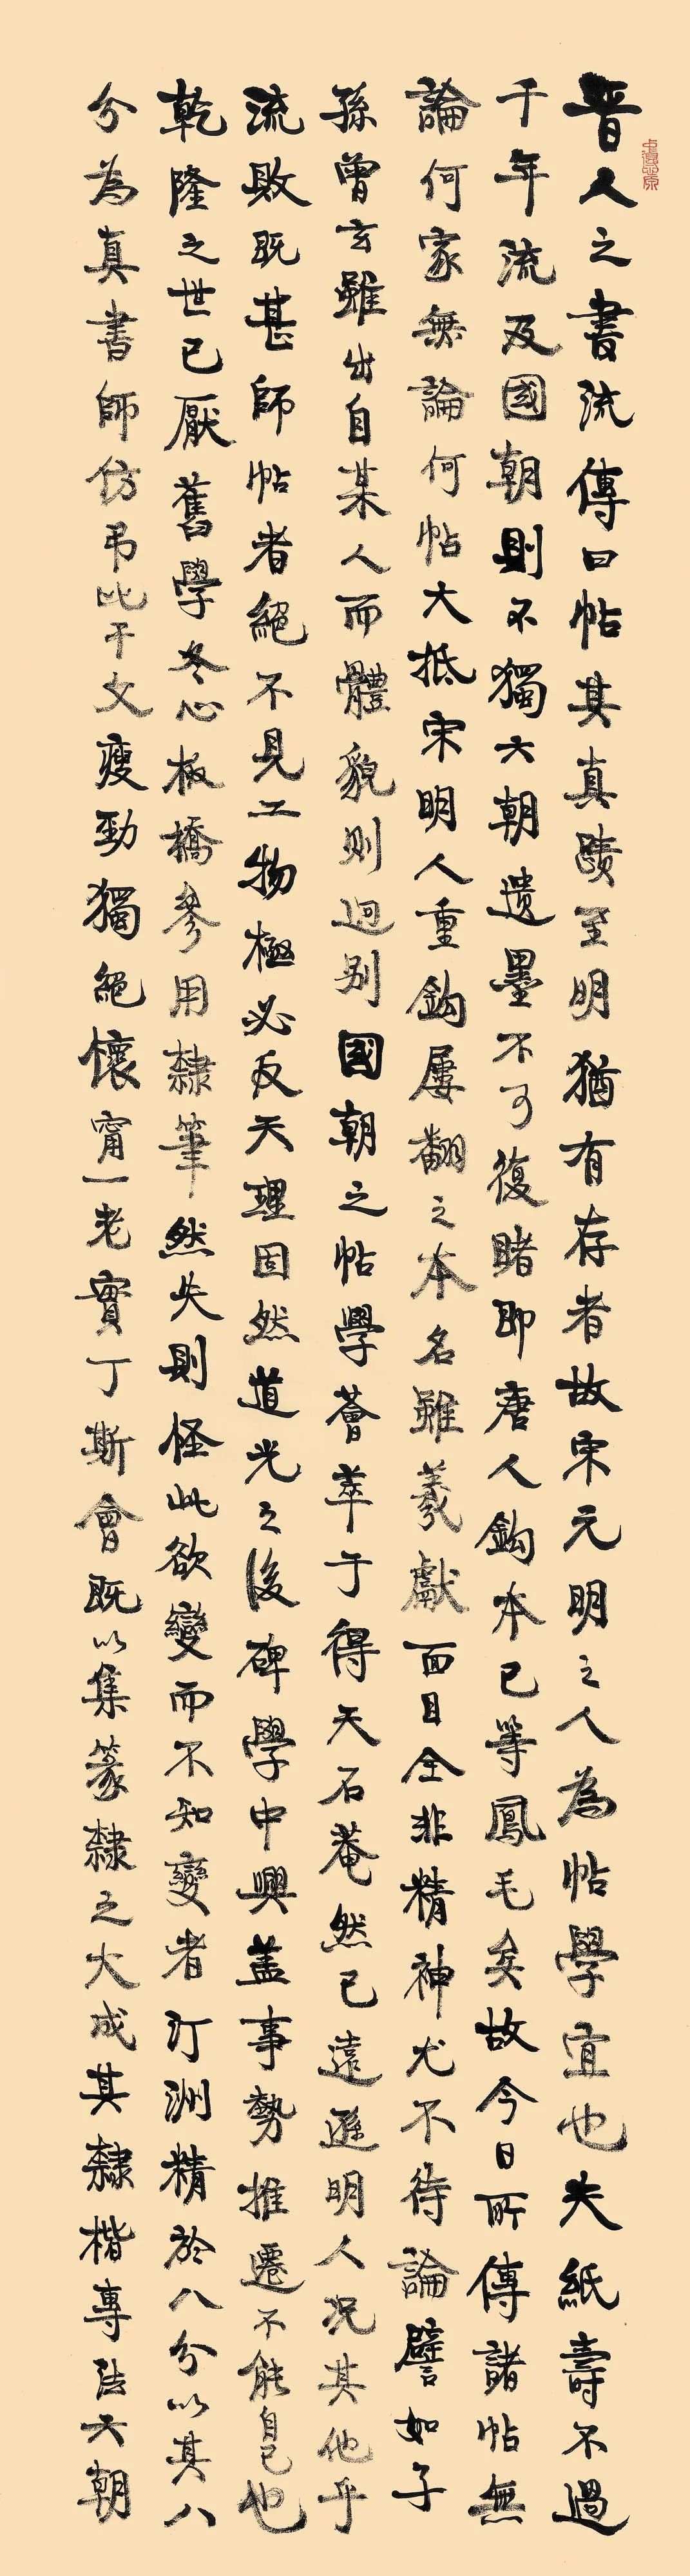 晉人之書流傳曰帖其真蹟至明猶有存者故宋元明之人為帖學宜也夫紙壽不過
千年流及國朝則不獨六朝遺墨不可復睹即唐人鈎本已等鳳毛矣故今日所傳諸帖無
論何家無論何帖大抵宋明人重鈎屢翻之本名雖羲獻面目全非精神尤不待論譬如子
孫曾玄雖出自某人而體貌則迥别國朝之帖學薈萃于得天石菴然已遠遜明人況其他乎
流敗既甚師帖者絕不見工物極必反天理固然道光之後碑學中興蓋事勢推遷不能自已也
乾隆之世已厭舊學冬心板橋參用隸筆然失則怪此欲變而不知變者汀洲精於八分以其八
分為真書師仿弔比干文瘦勁獨絕懷甯一老實丁斯會既以集篆隸之大成其隸楷專法六朝